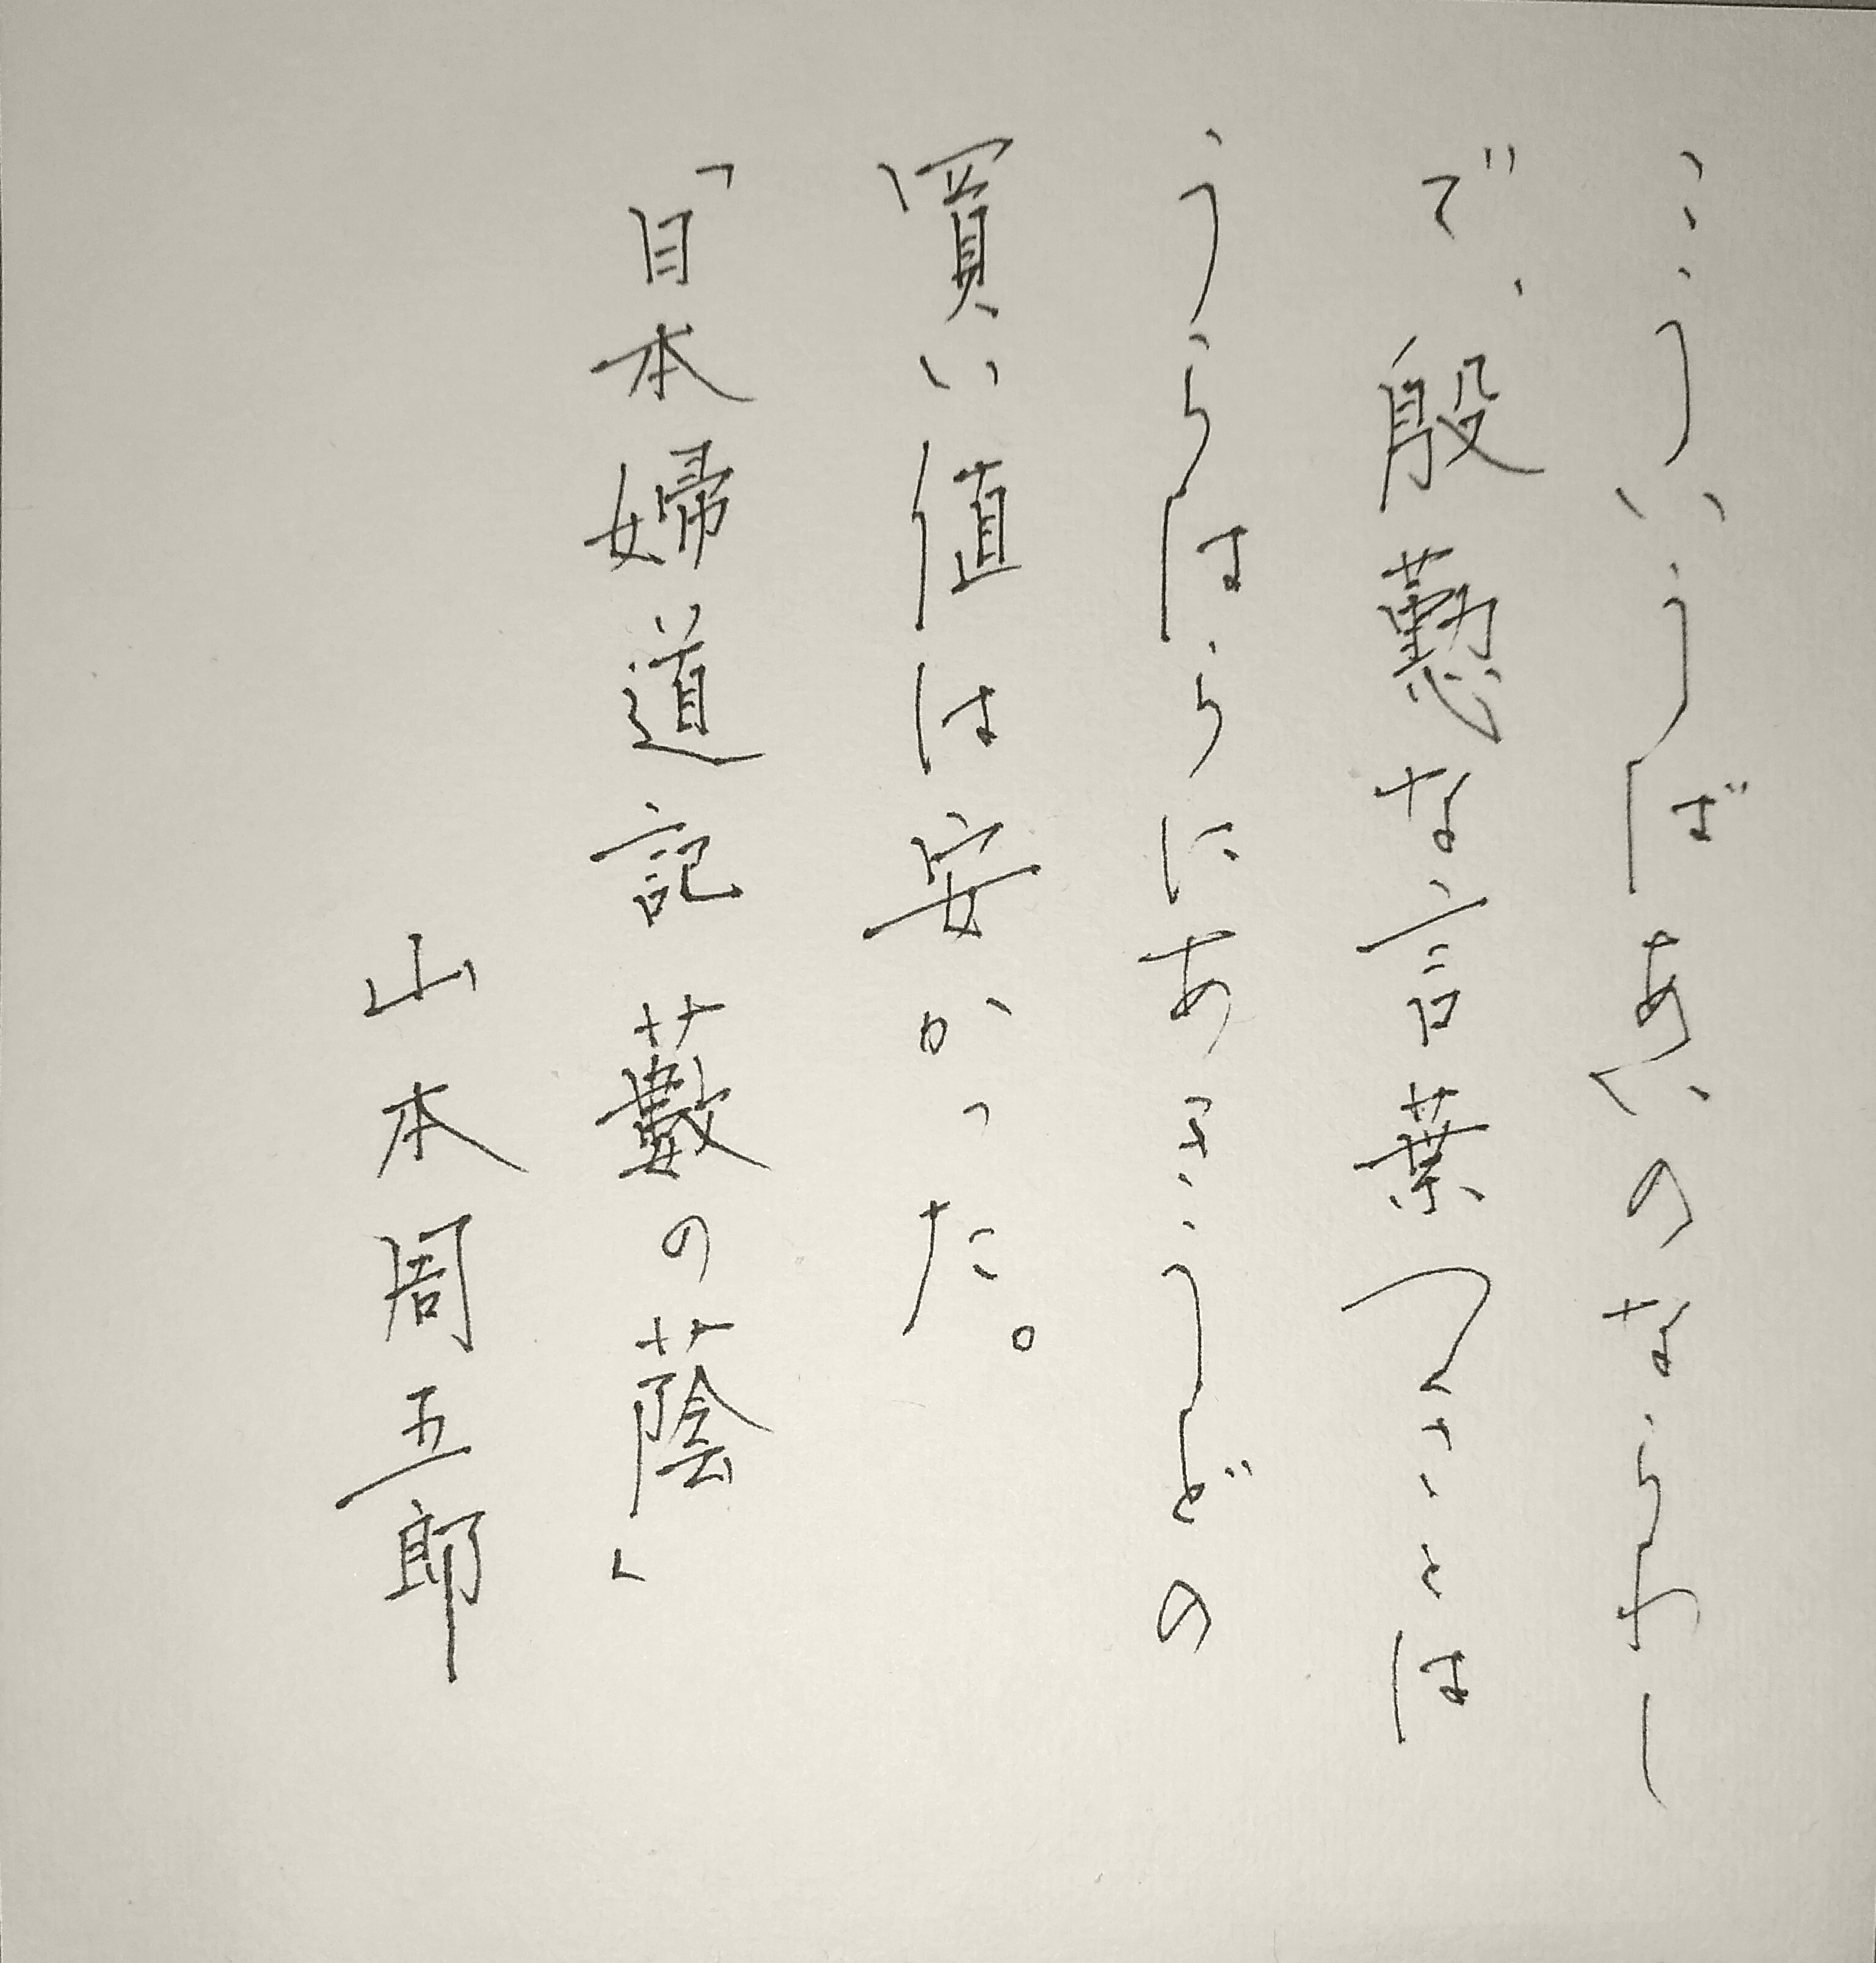 こういうばあいのならわし
で、慇懃な言葉つきとは
うらはらにあきうどの
買い値は安かった。
「日本婦道記 藪の蔭」
山本周五郎